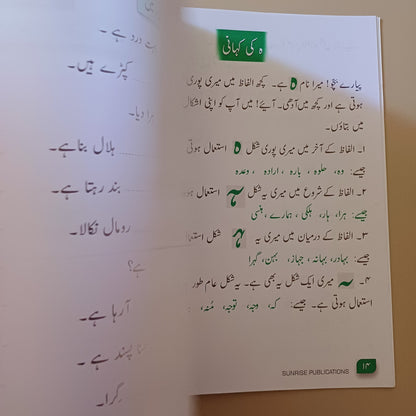 ہ کی کہانی
پیارے بچو! میرا نام ہ ہے۔ کچھ الفاظ میں میری پوری
ہوتی ہے اور کچھ میں آدھی۔ آیئے! میں آپ کو اپنی اشکال
میں بتاؤں۔
۱۔ الفاظ کے آخر میں میری پوری شکل ہ استعمال ہوتی
جیسے: وہ، حلوہ، بارہ، ارادہ، وعدہ
۲۔ الفاظ کے شروع میں میری یہ شکل ہـ استعمال ہو
جیسے: ہرا، ہار، ہلکی، ہمارے، ہنسی
۳۔ الفاظ کے درمیان میں میری یہ ـہـ شکل استعما
جیسے: بہادر، بہانہ، جہاز، بہن، گہرا
۴۔ ـہ میری ایک شکل یہ بھی ہے۔ یہ شکل عام طور
استعمال ہوتی ہے۔ جیسے: کہ، وجہ، توجہ، مُنہ،
SUNRISE PUBLICATIONS
۱۴
درد ہے ۔
کپڑے ہیں۔
دیا۔
ہلال بنا ہے۔
بند رہتا ہے۔
رومال نکالا۔
ہے؟
آرہا ہے۔
پسند ہے ۔
گرا۔